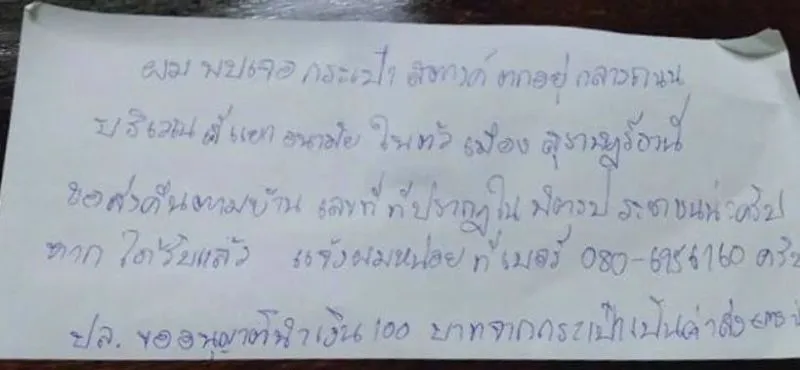 ผม พบเจอ กระเป๋า สตางค์ ตกอยู่ กลางถนน
บริเวณ สี่แยก อนามัย ในตัว เมือง สุราษฎร์ธานี
ขอส่งคืนตามบ้าน เลขที่ ที่ปรากฏใน บัตรประชาชนน่ะครับ
หาก ได้รับแล้ว แจ้งผมหน่อย ที่ เบอร์ 080-6956160 ครับ
ปล. ขออนุญาตินำเงิน 100 บาทจากกระเป๋าเป็นค่าส่ง EMS